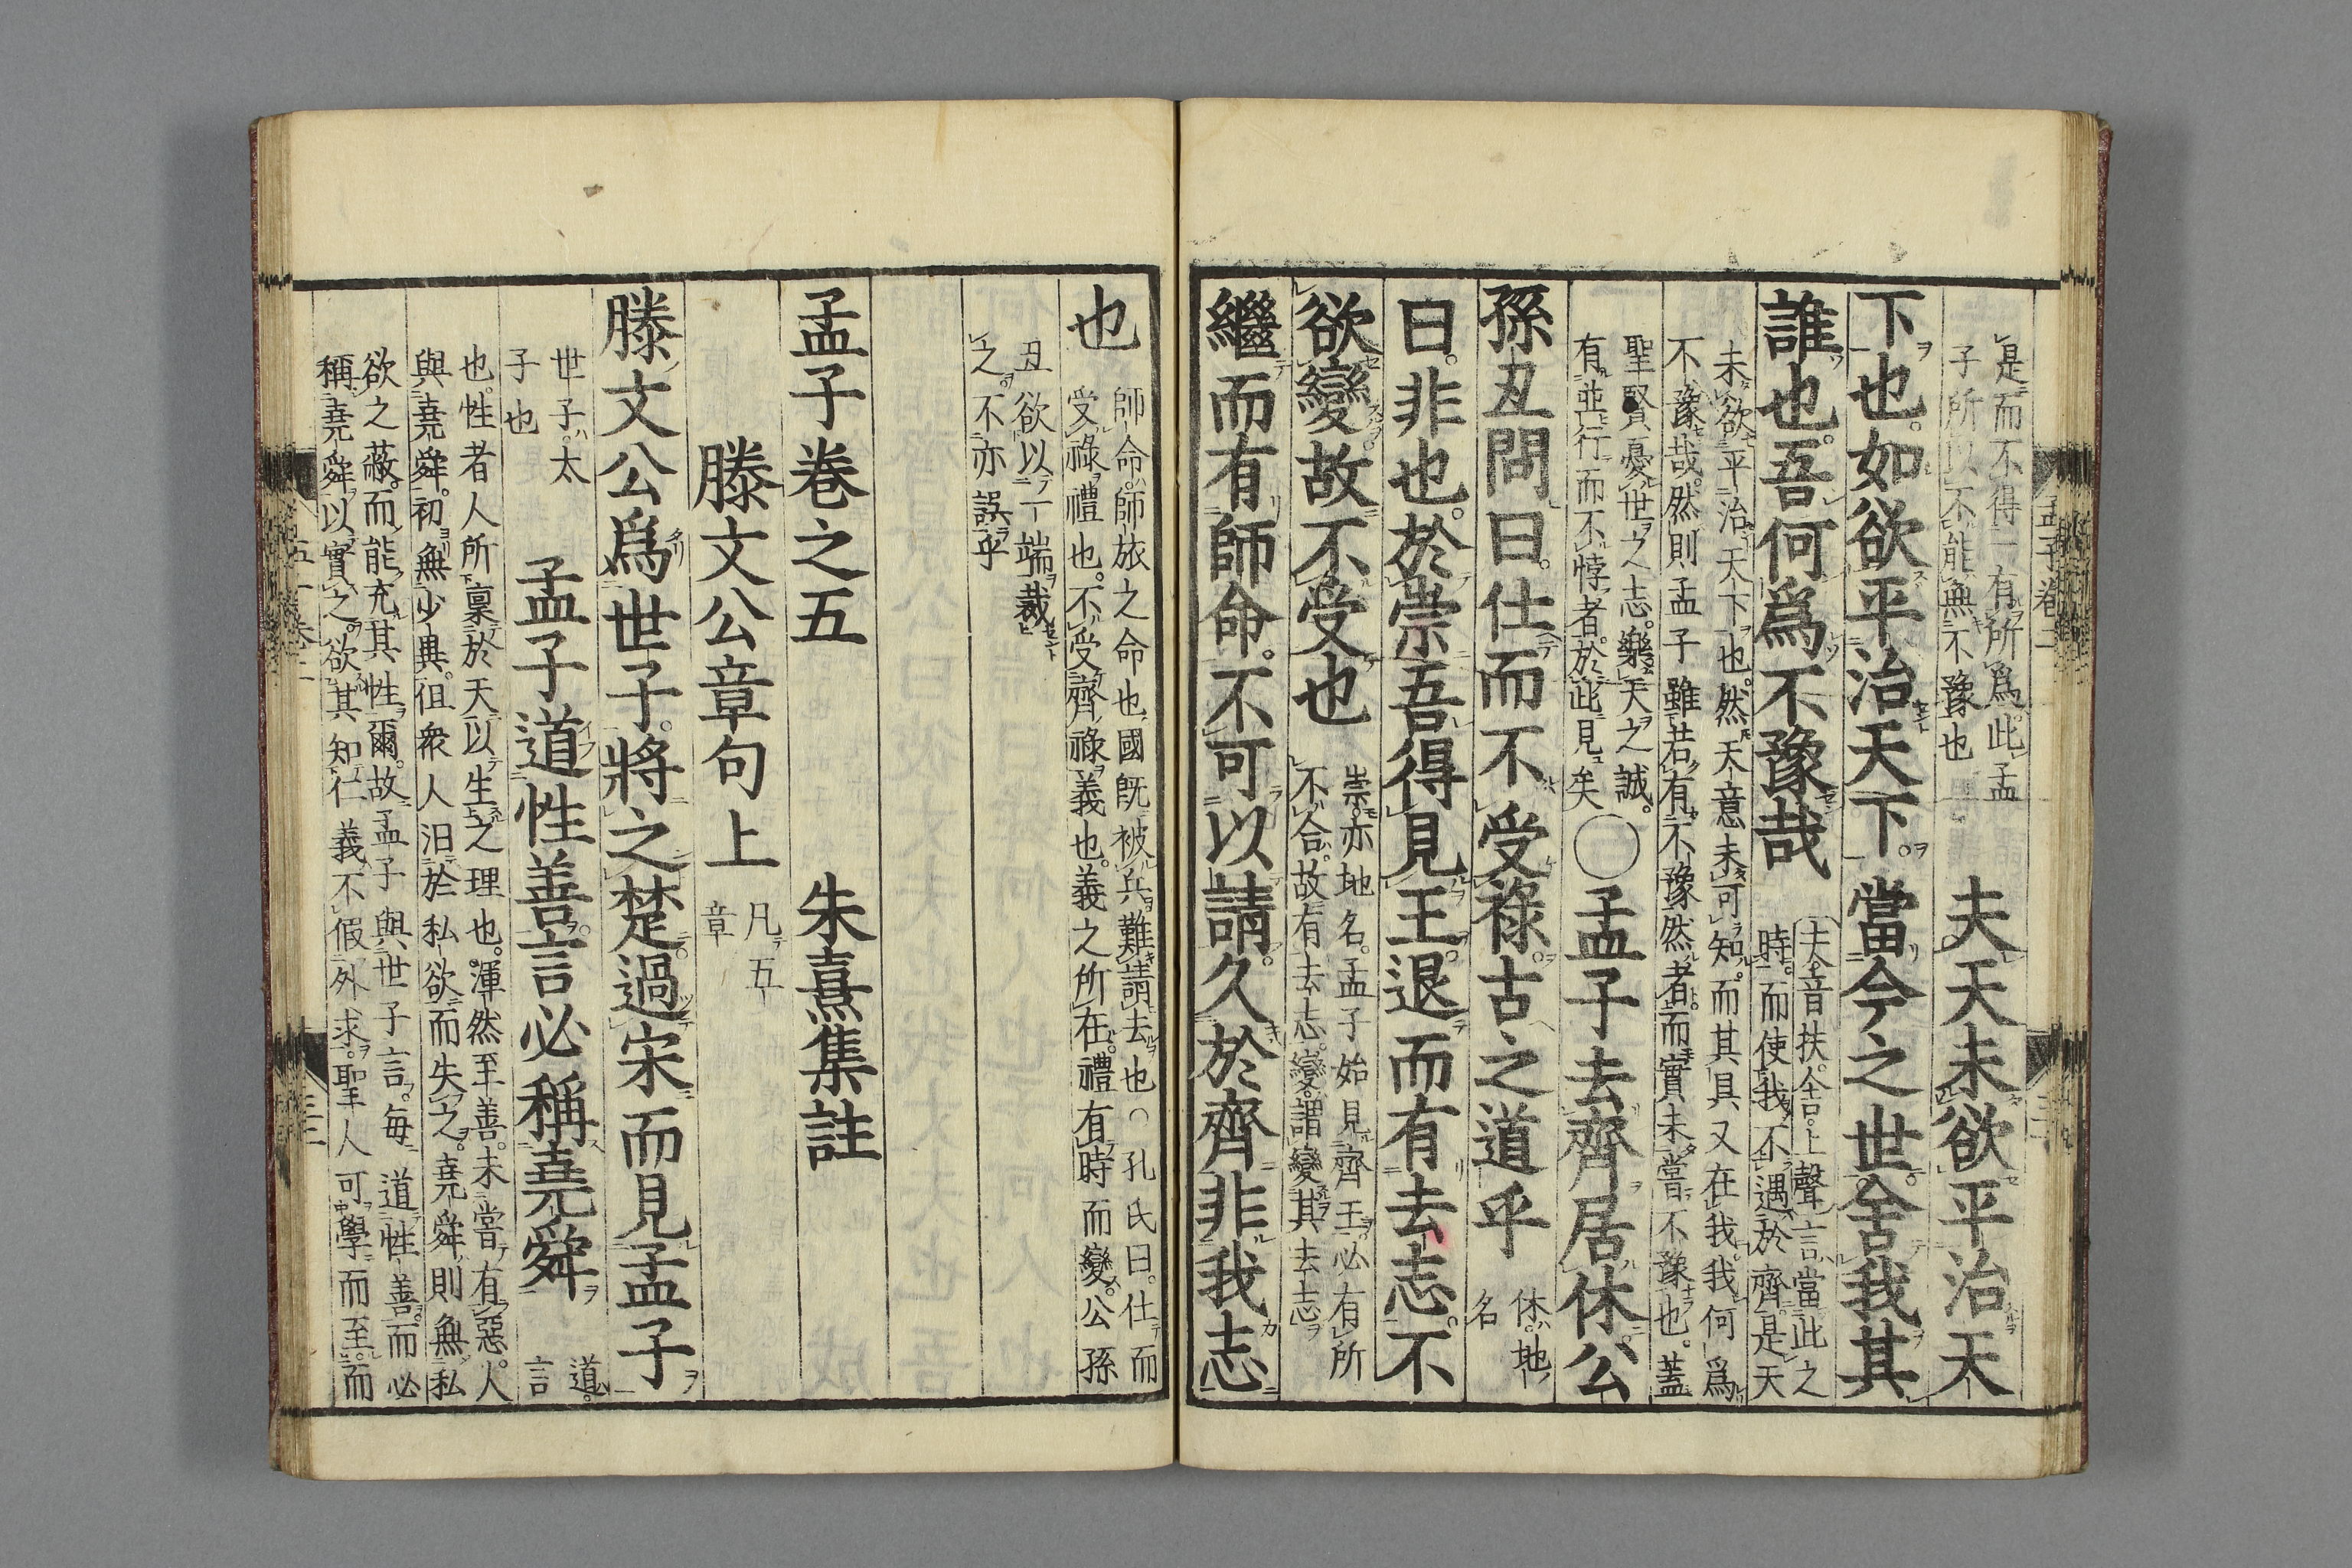 是而不得一有所爲此孟
子所以不能無不豫也
夫天未欲平治天
下也。如欲平治天下。當今之世。舍我其
誰也。吾何爲不豫哉
夫音扶。舍上聲。言當此之
時。而使我不遇於齊。是天
未欲平治天下也。然天意未可知。而其具又在我。我何爲
不豫哉。然則孟子雖若有不豫然者。而實未嘗不豫也。蓋
聖賢憂世之志。樂天之誠。
有並行而不悖者。於此見矣
○孟子去齊居休。公
孫丑問曰。仕而不受祿。古之道乎
休。地
名
曰。非也。於崇吾得見王。退而有去志。不
欲變。故不受也
崇。亦地名。孟子始見齊王。必有所
不合。故有去志。變。謂變其去志
繼而有師命。不可以請。久於齊非我志
也
師命。師旅之命也。國既被兵。難請去也○孔氏曰。仕而
受祿。禮也。不受齊祿。義也。義之所在。禮有時而變。公孫
丑欲以一端裁
之。不亦誤乎
孟子卷之五 朱熹集註
滕文公章句上
凡五
章
滕文公爲世子。將之楚。過宋而見孟子
世子。太
子也
孟子道性善。言必稱堯舜
道。
言
也。性者人所稟於天以生之理也。渾然至善。未嘗有惡。人
與堯舜。初無少異。但衆人汨於私欲而失之。堯舜則無私
欲之蔽。而能充其性爾。故孟子與世子言。每道性善。而必
稱堯舜以實之。欲其知仁義不假外求。聖人可學而至。而